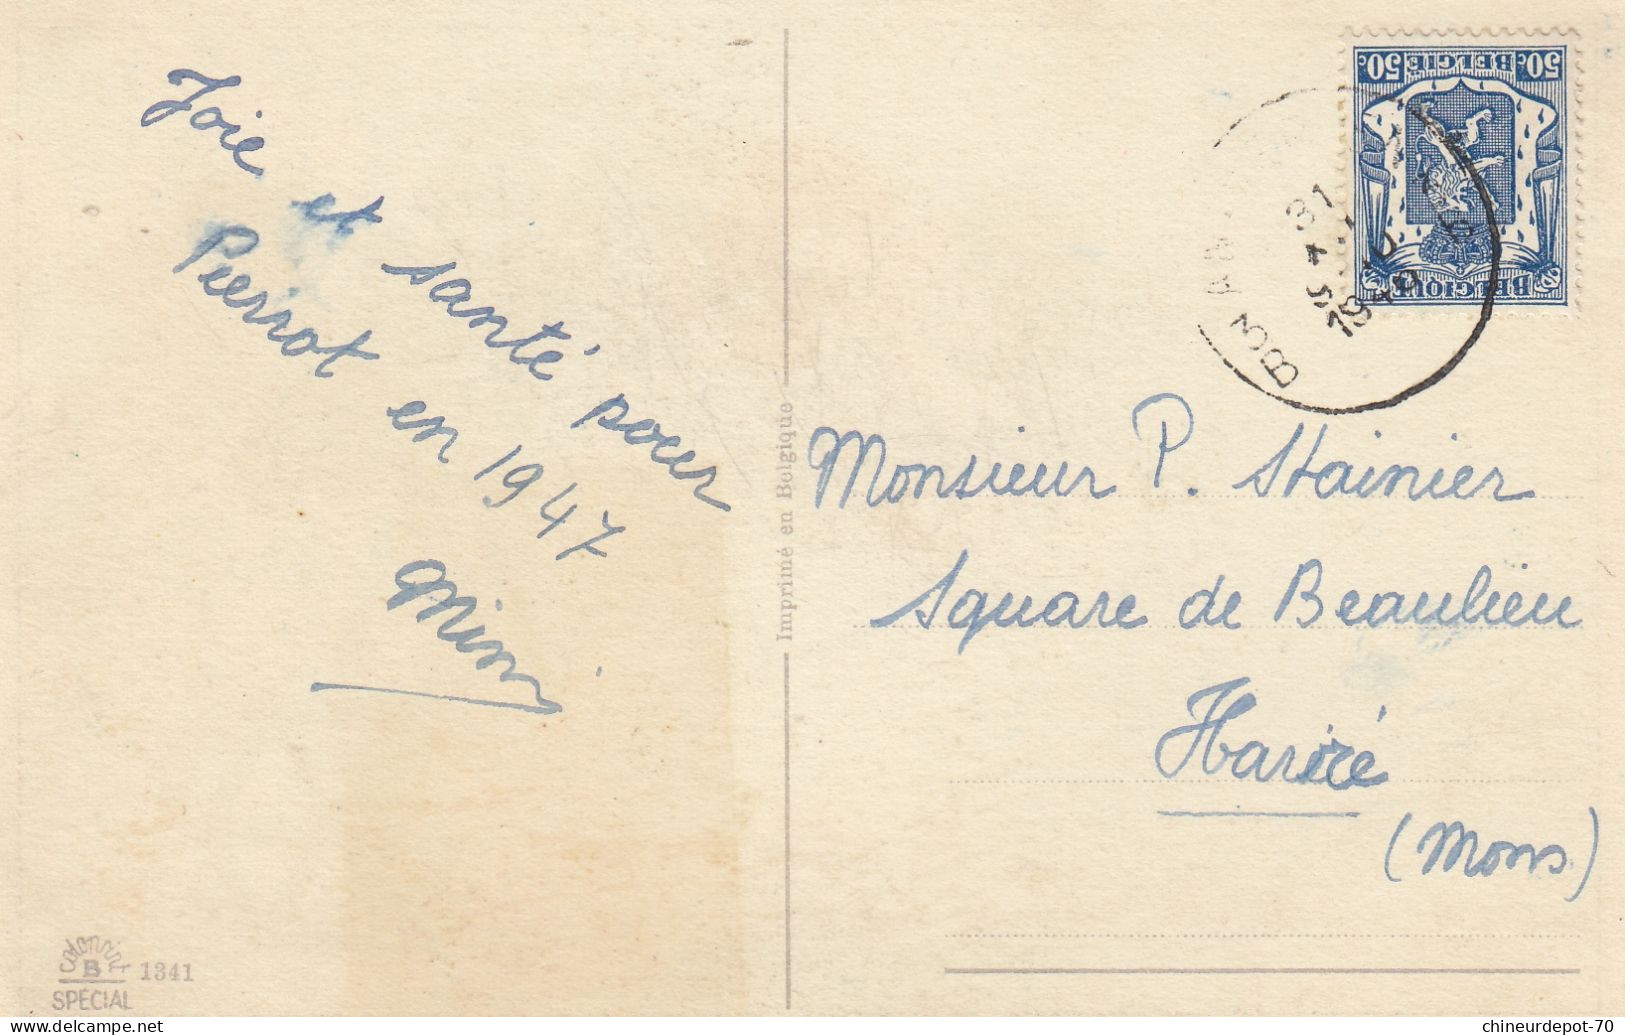 Joie et santé pour
Pierrot en 1947
Mimi
Imprimé en Belgique
50c BELGIE 50c
BELGIQUE
31
1946
Monsieur P. Stainier
Square de Beaulieu
Havré
(Mons)
B 1341
SPÉCIAL
delcampe.net
chineurdepot-70